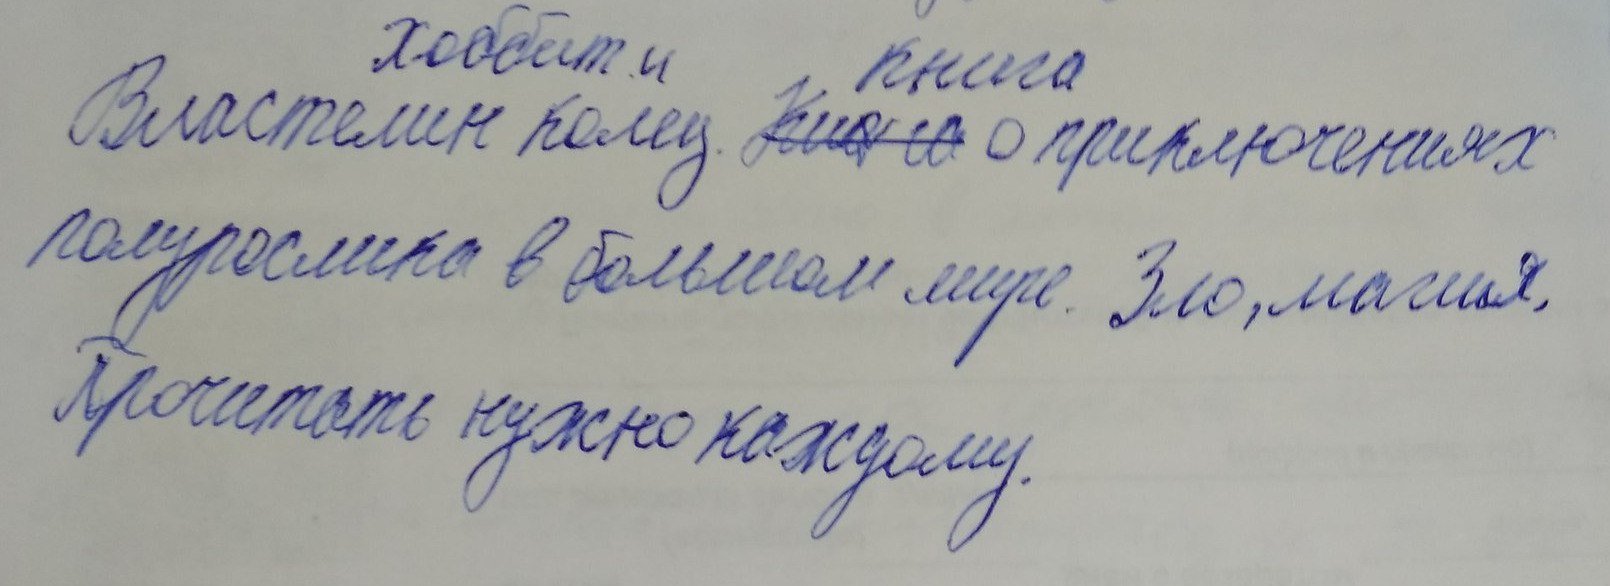 хоббит и книга
Властелин колец. о приключениях
полурослика в большом мире. Зло, магия.
Прочитать нужно каждому.